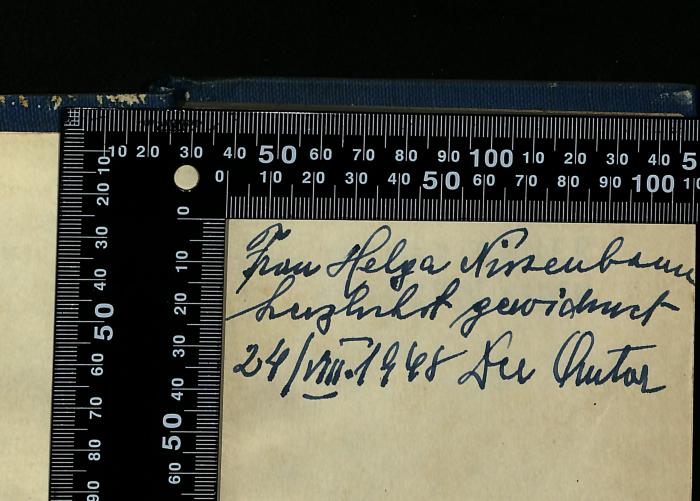 10 20 30 40 50 60 70 80 90 100 10 20 30 40 5
0 10 20 30 40 50 60 70 80 90 100 1
10
20
30
40
50
60
70
80
90
0
10
20
30
40
50
60
Frau Helga Nissenbaum
herzlichst gewidmet
24/VIII.1968 Der Autor